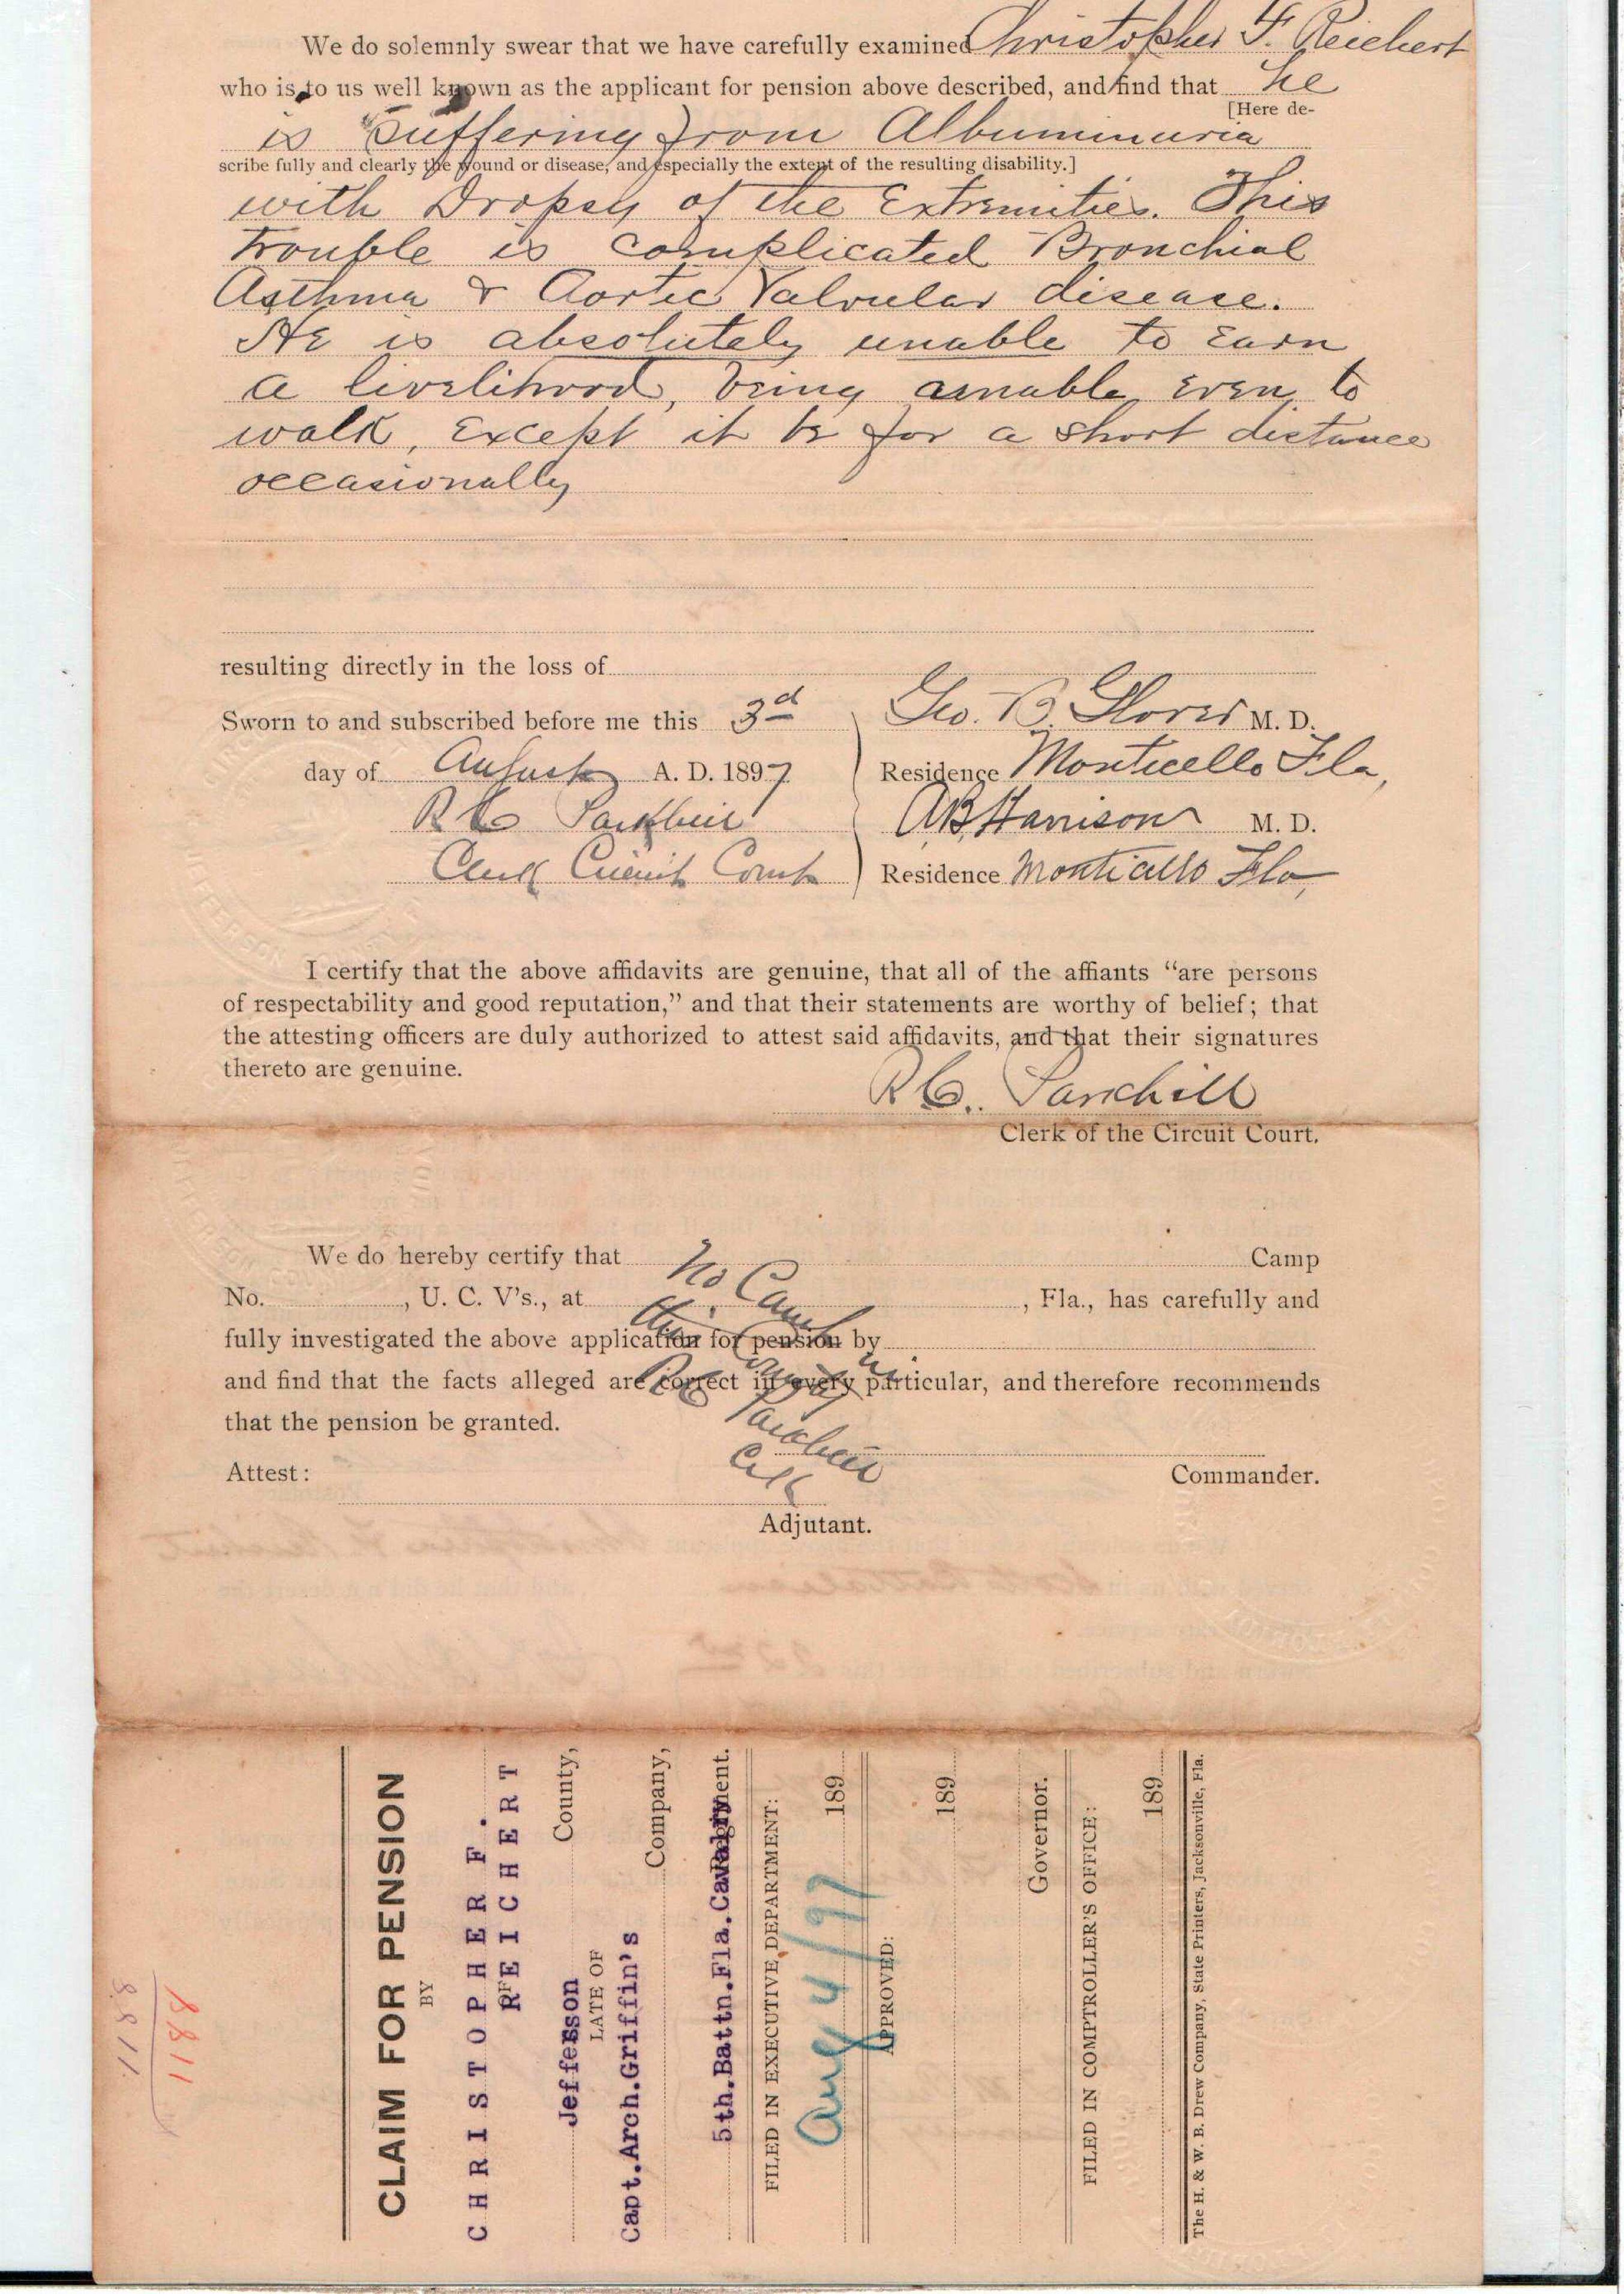 We do solemnly swear that we have carefully examined Christopher F. Reichert
who is to us well known as the applicant for pension above described, and find that he
[Here de-
is suffering from Albuminuria
scribe fully and clearly the wound or disease, and especially the extent of the resulting disability.]
with Dropsy of the Extremities. This
trouble is complicated Bronchial
Asthma & Aortic Valvular disease.
He is absolutely unable to earn
a livelihood, being unable even to
walk, Except it be for a short distance
occasionally
resulting directly in the loss of
Sworn to and subscribed before me this 3d
Geo. B. Glover M. D.
day of August A. D. 1897
Residence Monticello Fla,
R C Parkhill
A B Harrison M. D.
Clerk Circuit Court
Residence Monticello Fla,
I certify that the above affidavits are genuine, that all of the affiants "are persons
of respectability and good reputation," and that their statements are worthy of belief; that
the attesting officers are duly authorized to attest said affidavits, and that their signatures
thereto are genuine.
R C. Parkhill
Clerk of the Circuit Court.
We do hereby certify that Camp
No. , U. C. V's., at , Fla., has carefully and
fully investigated the above application for pension by
and find that the facts alleged are correct in every particular, and therefore recommends
that the pension be granted.
No Camp in
this County
R C Parkhill
Clk
Commander.
Attest:
Adjutant.
CLAIM FOR PENSION
BY
CHRISTOPHER F.
REICHERT
OF
Jefferson County,
LATE OF
Capt.Arch.Griffin's Company,
5th.Battn.Fla.Cavalry Regiment.
FILED IN EXECUTIVE DEPARTMENT:
Aug 4/97 189
APPROVED:
189
Governor.
FILED IN COMPTROLLER'S OFFICE:
189
The H. & W. B. Drew Company, State Printers, Jacksonville, Fla.